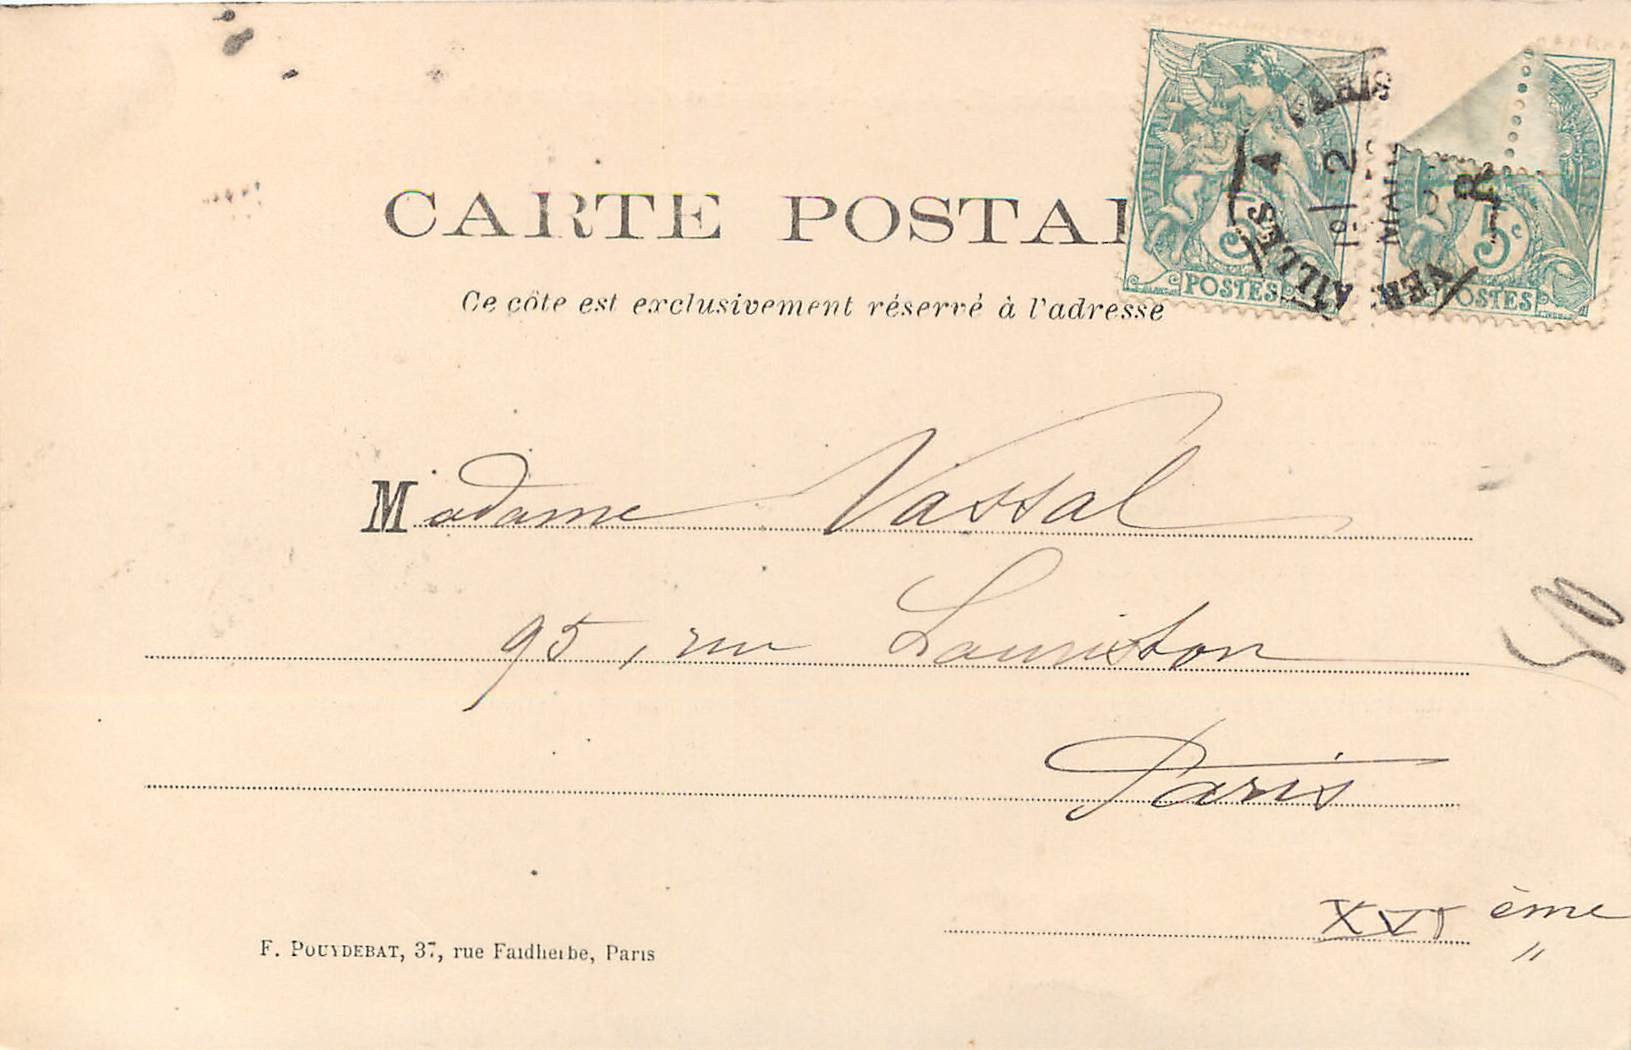 CARTE POSTAL
Ce côte est exclusivement réservé à l'adresse
POSTES
5c
POSTES
PARIS
VERSAILLES A
Madame Vassal
95, rue Lauriston
Paris
XVIème
50
F. POUYDEBAT, 37, rue Faidherbe, Paris